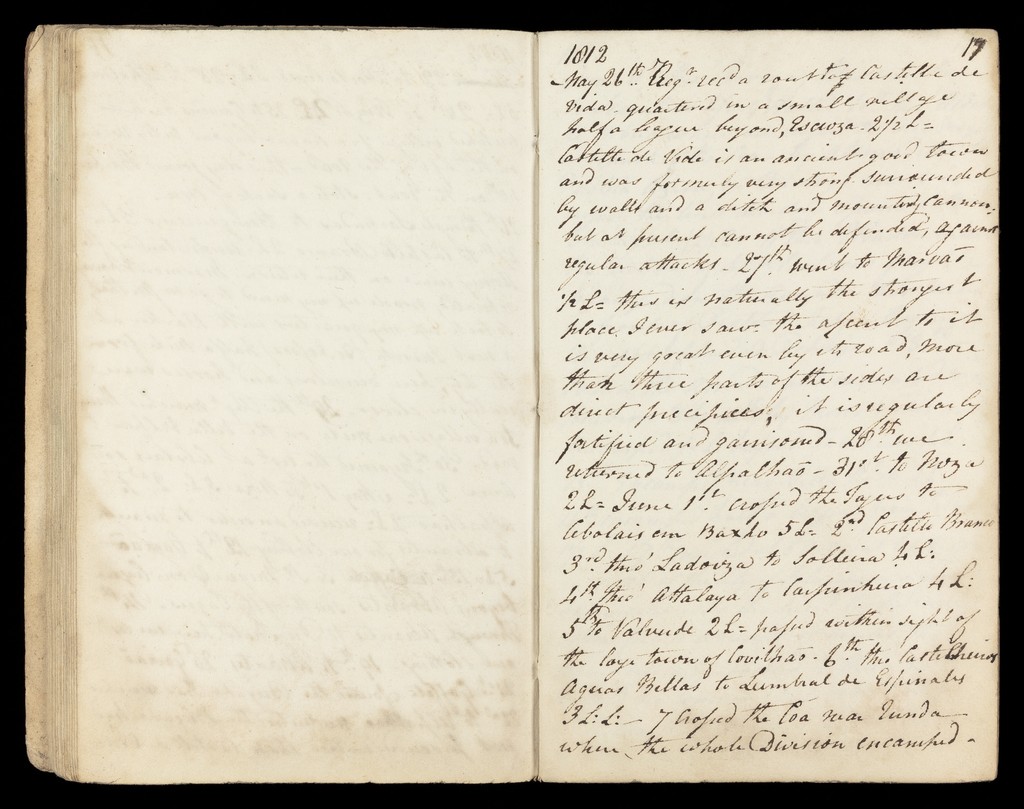 1812 17
May 26th. Regt. recd a rout to Castille de
Vida. quartered in a small village
half a league beyond, Escuza. 2 1/2 L=
Castille de Vide is an ancient good town
and was formerly very strong surrounded
by walls and a ditch and mounted, Cannon:
but at present cannot be defended, against
regular attacks - 27th. went to Marvao
1/2 L= this is naturally the strongest
place I ever saw. the ascent to it
is very great even by its road, more
than three parts of the sides are
direct precipices, it is regularly
fortified and garrisoned - 28th we
returned to Alpalhao - 31st. to Niza
2L= June 1st. crossed the Tagus to
Cebolais em Baxho 5L= 2nd Castello Branco
3rd. thro' Ladoiza to Solleira 4L:
4th. thro' Attalaya to Carpinheira 4 L:
5th to Valverde 2L= passed within sight of
the large town of Covilhao. 6th thro Castelheiros
Aguas Bellas to Lumbral de Espinales
3 L: L: - 7 Crossed the Coa near Runda
where the whole Division encamped -